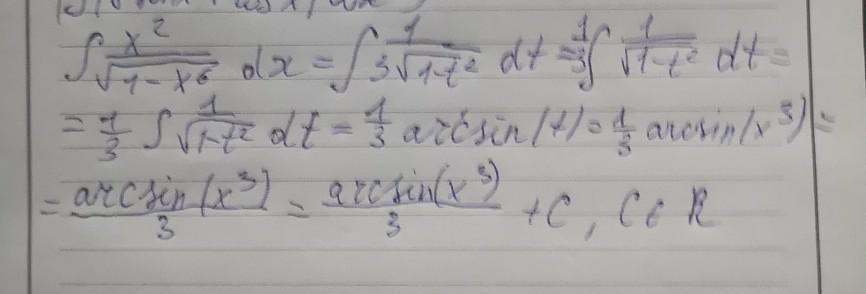 ∫ x²/√(1-x⁶) dx = ∫ 1/(3√(1-t²)) dt = 1/3 ∫ 1/√(1-t²) dt =
= 1/3 ∫ 1/√(1-t²) dt = 1/3 arcsin(t) = 1/3 arcsin(x³) =
= arcsin(x³)/3 = arcsin(x³)/3 + C, C ∈ R